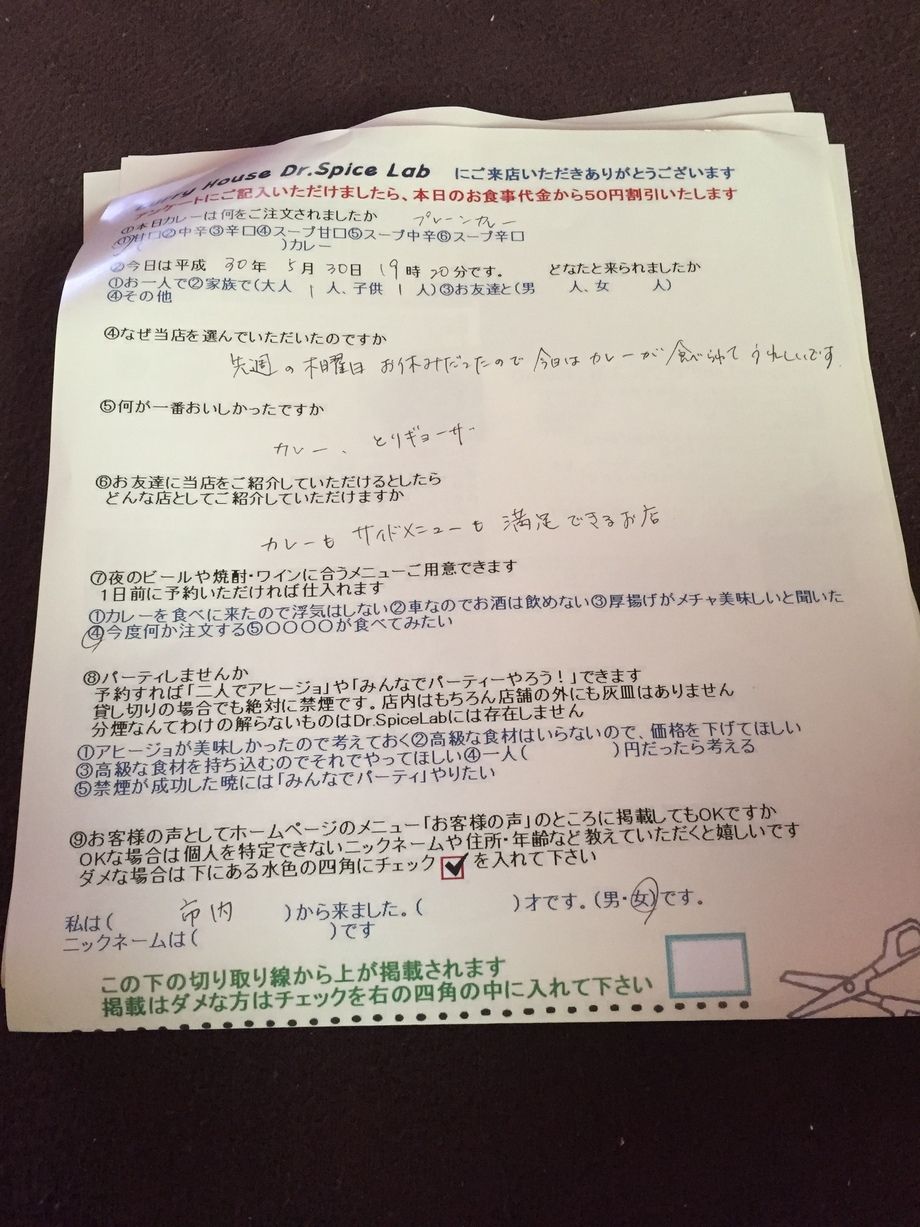 Curry House Dr.Spice Lab にご来店いただきありがとうございます
アンケートにご記入いただけましたら、本日のお食事代金から50円割引いたします
①本日カレーは何をご注文されましたか プレーンカレー
①甘口②中辛③辛口④スープ甘口⑤スープ中辛⑥スープ辛口
( )カレー
②今日は平成 30年 5月30日 19時20分です。 どなたと来られましたか
①お一人で②家族で(大人 1人、子供 1人)③お友達と(男 人、女 人)
④その他
④なぜ当店を選んでいただいたのですか
先週の木曜日 お休みだったので 今日はカレーが 食べられて うれしいです
⑤何が一番おいしかったですか
カレー、とりギョーザ
⑥お友達に当店をご紹介していただけるとしたら
どんな店としてご紹介していただけますか
カレーも サイドメニューも 満足できるお店
⑦夜のビールや焼酎・ワインに合うメニューご用意できます
1日前に予約いただければ仕入れます
①カレーを食べに来たので浮気はしない②車なのでお酒は飲めない③厚揚げがメチャ美味しいと聞いた
④今度何か注文する⑤〇〇〇〇が食べてみたい
⑧パーティしませんか
予約すれば「二人でアヒージョ」や「みんなでパーティーやろう!」できます
貸し切りの場合でも絶対に禁煙です。店内はもちろん店舗の外にも灰皿はありません
分煙なんてわけの解らないものはDr.SpiceLabには存在しません
①アヒージョが美味しかったので考えておく②高級な食材はいらないので、価格を下げてほしい
③高級な食材を持ち込むのでそれでやってほしい④一人( )円だったら考える
⑤禁煙が成功した暁には「みんなでパーティ」やりたい
⑨お客様の声としてホームページのメニュー「お客様の声」のところに掲載してもOKですか
OKな場合は個人を特定できないニックネームや住所・年齢など教えていただくと嬉しいです
ダメな場合は下にある水色の四角にチェック を入れて下さい
私は( 市内 )から来ました。( )才です。(男・女)です。
ニックネームは( )です
この下の切り取り線から上が掲載されます
掲載はダメな方はチェックを右の四角の中に入れて下さい